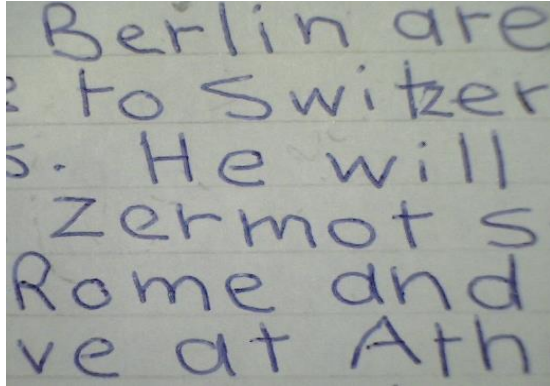 Berlin are
to Switzer
s. He will
zermot s
Rome and
ve at Ath